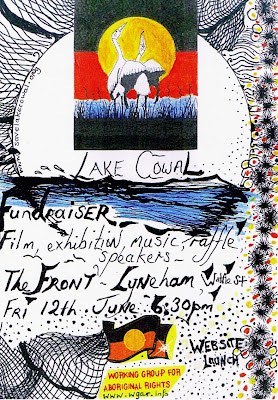 www.savelakecowal.org
LAKE COWAL
FundraiSER
Film, exhibition, music, raffle
speakers
The FRONT - Lyneham Wattle St
Fri 12th. June 6:30pm
WEBSITE
LAUNCH
WORKING GROUP FOR
ABORIGINAL RIGHTS
www.wgar.info